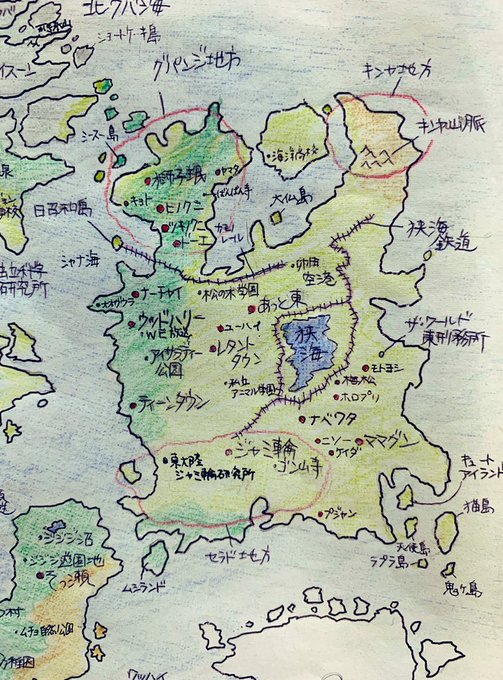 北クバ海
ショートケーキ島
グリペンジ地方
キンヤ地方
イスーン
シースー島
獅子球
ヤマタ
海洋高校
キンヤ山脈
キョト
ヒノクニ
ばんばん寺
日召和島
ツキノクニ
カモノ
レール
大仏島
トーエ
狭海
鉄道
シャナ海
私立科学
研究所
卵田
空港
ナーチャイ
松の木学園
あっと東
ウッドハリー
WE放送
ユーハイ
狭
海
ザ・ワールド
東刑務所
アイサラティー
公園
レタント
タウン
モトヨシ
私立
アニマル学園
梅松
ホロプリ
ティーンタウン
ナベワタ
ジャミ輪
ニソー
ケイダ
ママグン
東大陸
ジャミ輪研究所
ゴン山寺
キュート
アイランド
猫島
プジャン
天使島
ラプラ島
セラド地方
ムシランド
鬼ヶ島
ジンジン沼
ジンジン遊園地
ムチョ自然公園
ワッハイ